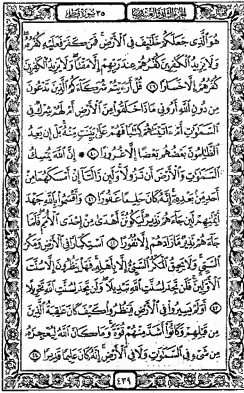 ٣٥ سورة فاطر
هُوَ الَّذِي جَعَلَكُمْ خَلَٰٓئِفَ فِي الْأَرْضِ فَمَن كَفَرَ فَعَلَيْهِ كُفْرُهُۥ
وَلَا يَزِيدُ الْكَٰفِرِينَ كُفْرُهُمْ عِندَ رَبِّهِمْ إِلَّا مَقْتًا وَلَا يَزِيدُ الْكَٰفِرِينَ
كُفْرُهُمْ إِلَّا خَسَارًا ٣٩ قُلْ أَرَءَيْتُمْ شُرَكَآءَكُمُ الَّذِينَ تَدْعُونَ
مِن دُونِ اللَّهِ أَرُونِي مَاذَا خَلَقُوا مِنَ الْأَرْضِ أَمْ لَهُمْ شِرْكٌ فِي
السَّمَٰوَٰتِ أَمْ ءَاتَيْنَٰهُمْ كِتَٰبًا فَهُمْ عَلَىٰ بَيِّنَتٍ مِّنْهُ بَلْ إِن يَعِدُ
الظَّٰلِمُونَ بَعْضُهُم بَعْضًا إِلَّا غُرُورًا ٤٠ إِنَّ اللَّهَ يُمْسِكُ
السَّمَٰوَٰتِ وَالْأَرْضَ أَن تَزُولَا وَلَئِن زَالَتَآ إِنْ أَمْسَكَهُمَا مِنْ
أَحَدٍ مِّنۢ بَعْدِهِۦٓ إِنَّهُۥ كَانَ حَلِيمًا غَفُورًا ٤١ وَأَقْسَمُوا بِاللَّهِ جَهْدَ
أَيْمَٰنِهِمْ لَئِن جَآءَهُمْ نَذِيرٌ لَّيَكُونُنَّ أَهْدَىٰ مِنْ إِحْدَى الْأُمَمِ فَلَمَّا
جَآءَهُمْ نَذِيرٌ مَّا زَادَهُمْ إِلَّا نُفُورًا ٤٢ اسْتِكْبَارًا فِي الْأَرْضِ وَمَكْرَ
السَّيِّئِ وَلَا يَحِيقُ الْمَكْرُ السَّيِّئُ إِلَّا بِأَهْلِهِۦ فَهَلْ يَنظُرُونَ إِلَّا سُنَّتَ
الْأَوَّلِينَ فَلَن تَجِدَ لِسُنَّتِ اللَّهِ تَبْدِيلًا وَلَن تَجِدَ لِسُنَّتِ اللَّهِ تَحْوِيلًا
٤٣ أَوَلَمْ يَسِيرُوا فِي الْأَرْضِ فَيَنظُرُوا كَيْفَ كَانَ عَٰقِبَةُ الَّذِينَ
مِن قَبْلِهِمْ وَكَانُوٓا أَشَدَّ مِنْهُمْ قُوَّةً وَمَا كَانَ اللَّهُ لِيُعْجِزَهُۥ
مِن شَيْءٍ فِي السَّمَٰوَٰتِ وَلَا فِي الْأَرْضِ إِنَّهُۥ كَانَ عَلِيمًا قَدِيرًا ٤٤
٤٣٩